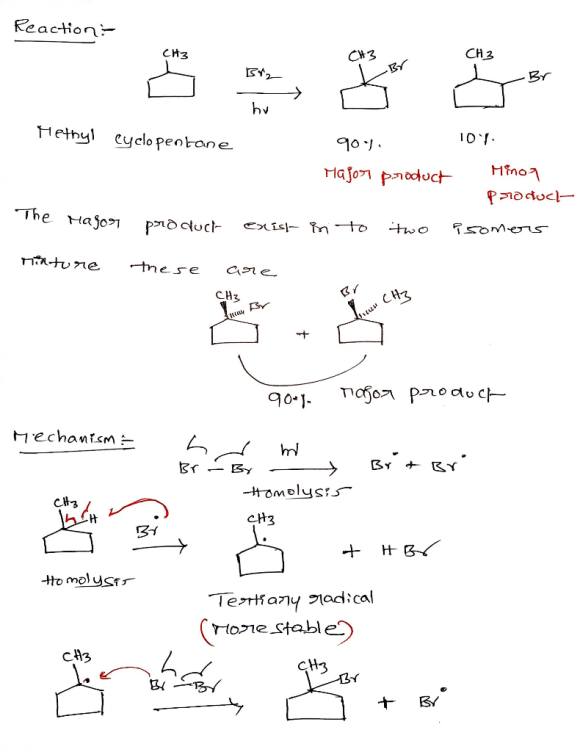 Reaction:-
CH3 CH3 Br CH3 Br
Br2
hν
Methyl cyclopentane 90%. 10%.
Major product Minor product
The Major product exist in to two isomers
Mixture these are
CH3 Br Br CH3
+
90%. Major product
Mechanism:-
Br – Br hν Br• + Br•
Homolysis
CH3 H Br• CH3 • + HBr
Homolysis
Tertiary radical
(More stable)
CH3 • Br – Br CH3 Br + Br•